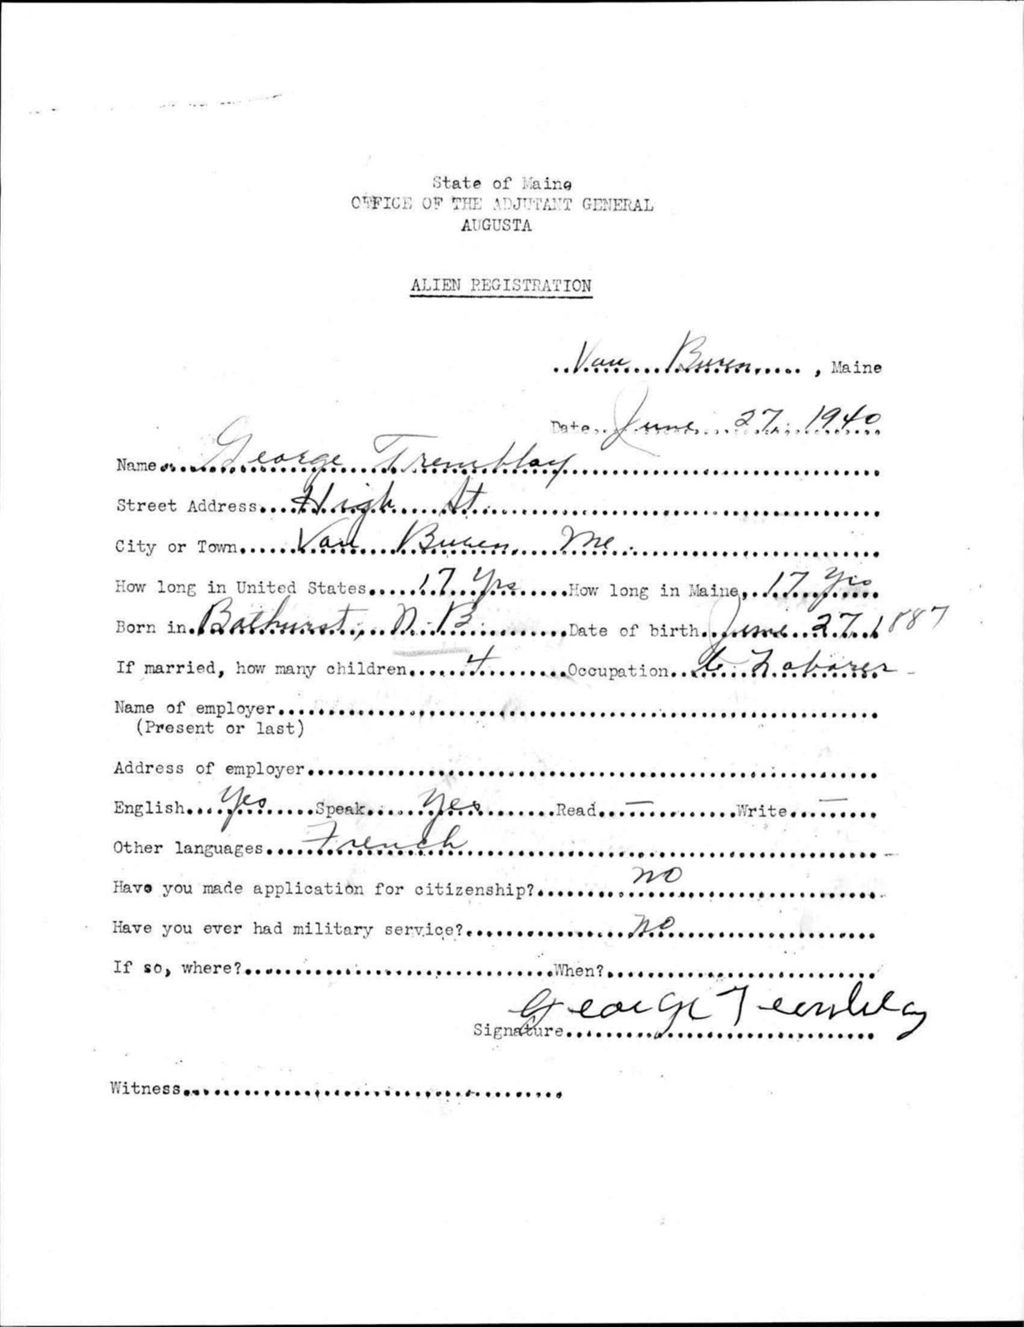 State of Maine
OFFICE OF THE ADJUTANT GENERAL
AUGUSTA
ALIEN REGISTRATION
Van Buren, Maine
Date June 27, 1940
Name George Tremblay
Street Address High St.
City or Town Van Buren, Me.
How long in United States 17 Yrs How long in Maine 17 Yrs
Born in Bathurst, N.B. Date of birth June 27, 1887
If married, how many children 4 Occupation Laborer
Name of employer
(Present or last)
Address of employer
English Yes Speak Yes Read — Write —
Other languages French
Have you made application for citizenship? no
Have you ever had military service? no
If so, where? When?
George Tremblay
Signature
Witness